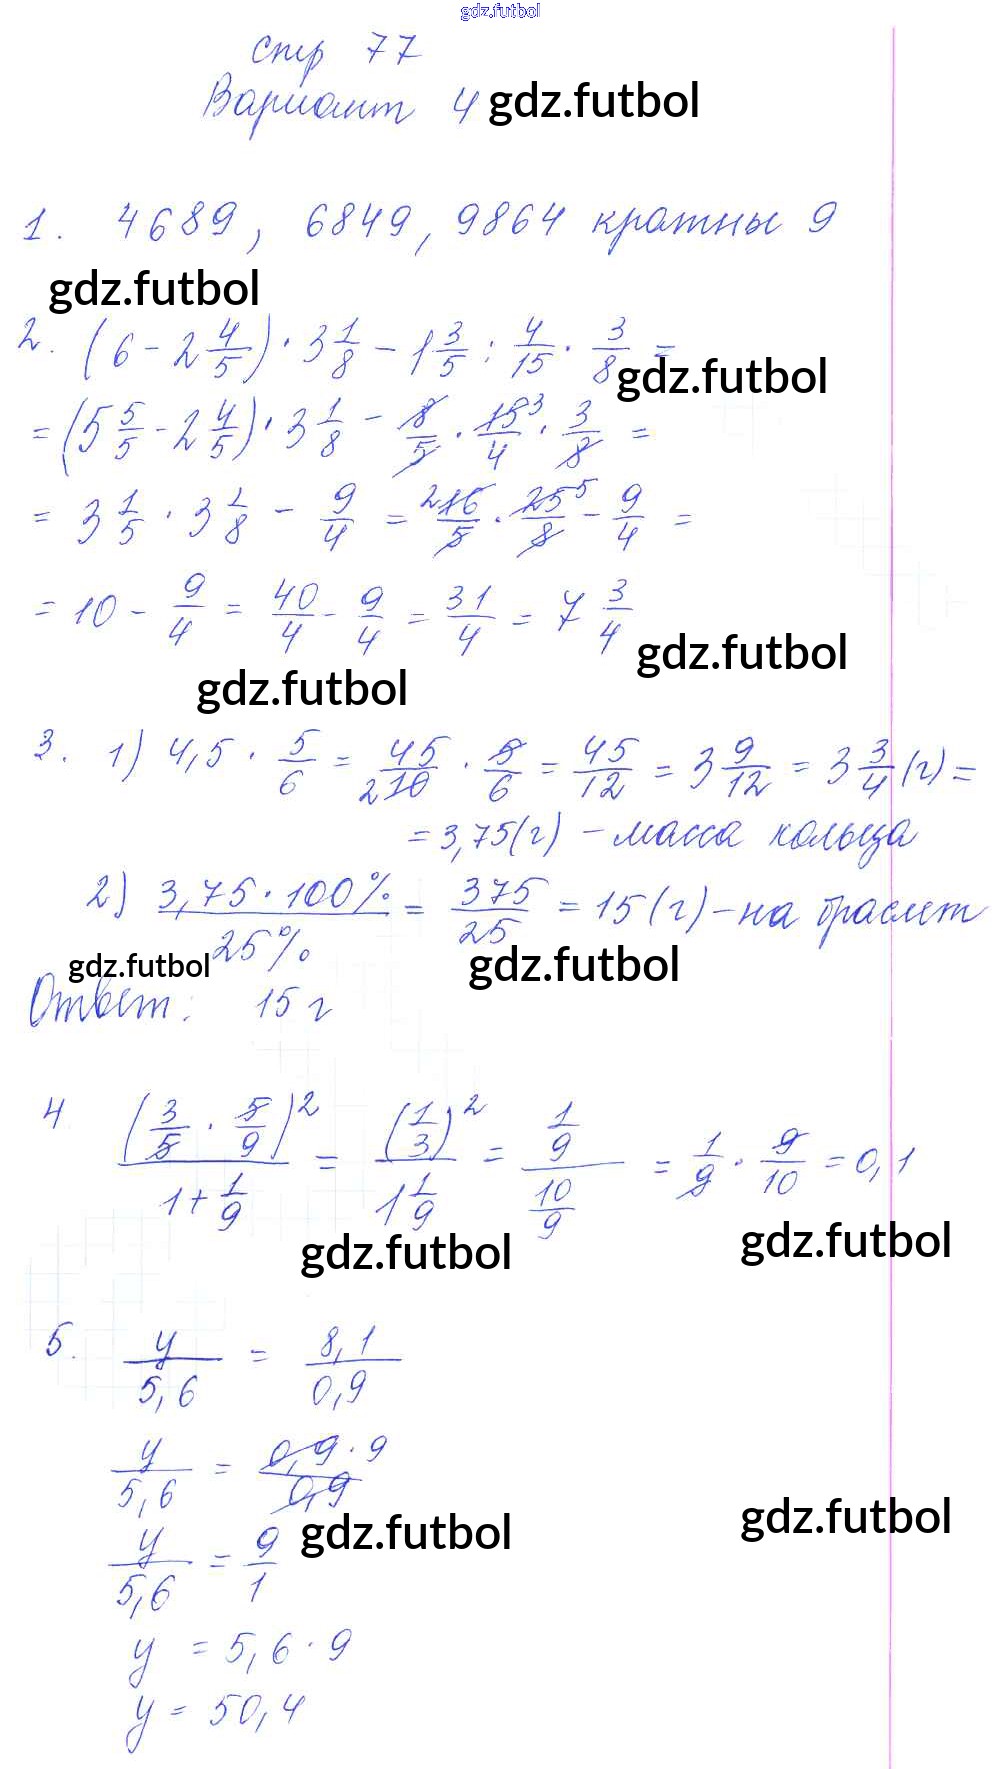 gdz.futbol
стр 77
Вариант 4 gdz.futbol
1. 4689, 6849, 9864 кратны 9
gdz.futbol
2. (6 - 2 4/5) · 3 1/8 - 1 3/5 : 4/15 · 3/8 =
gdz.futbol
= (5 5/5 - 2 4/5) · 3 1/8 - 8/5 · 15/4 3 · 3/8 =
= 3 1/5 · 3 1/8 - 9/4 = 2 16/5 · 25/8 5 - 9/4 =
= 10 - 9/4 = 40/4 - 9/4 = 31/4 = 7 3/4
gdz.futbol
gdz.futbol
3. 1) 4,5 · 5/6 = 45/2 10 · 5/6 = 45/12 = 3 9/12 = 3 3/4 (г) =
= 3,75 (г) - масса кольца
2) 3,75 · 100% / 25% = 375/25 = 15 (г) - на браслет
gdz.futbol gdz.futbol
Ответ: 15 г
4 (3/5 · 5/9)² / 1 + 1/9 = (1/3)² / 1 1/9 = 1/9 / 10/9 = 1/9 · 9/10 = 0,1
gdz.futbol gdz.futbol
5. y/5,6 = 8,1/0,9
y/5,6 = 0,9 · 9/0,9
gdz.futbol gdz.futbol
y/5,6 = 9/1
y = 5,6 · 9
y = 50,4